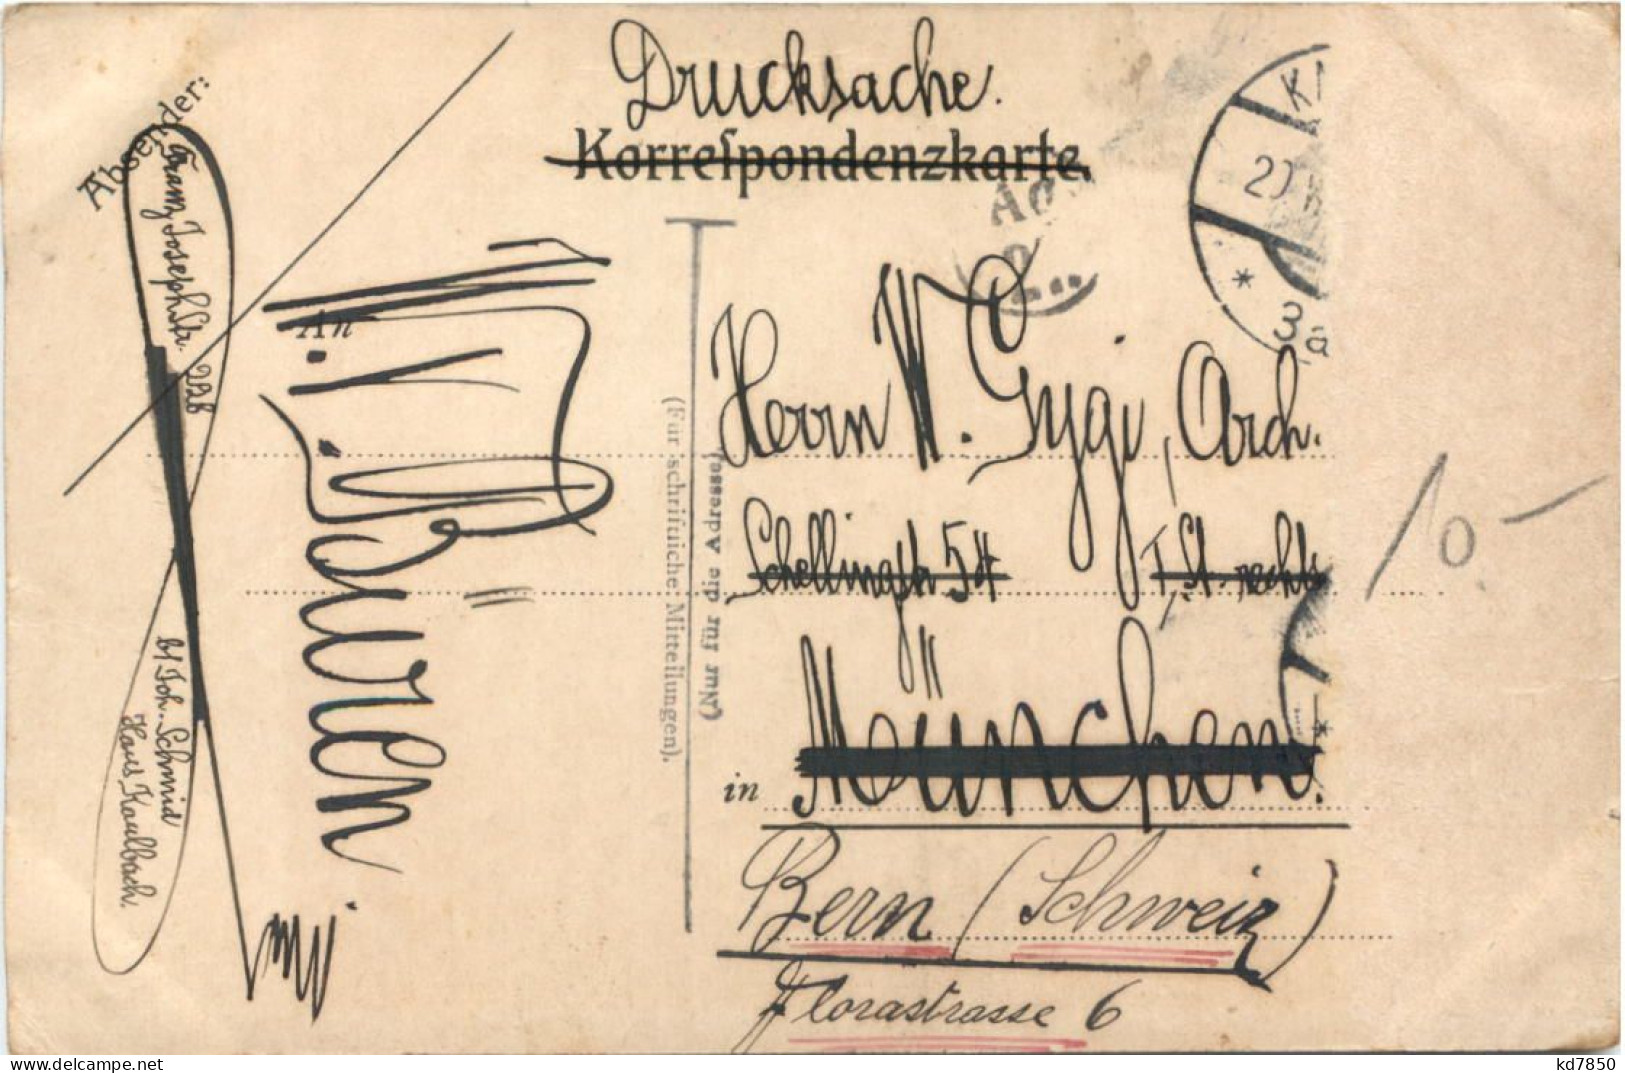 Drucksache.
Korrespondenzkarte
Absender:
Franz Josephstr. 22b
b/ Joh. Schmid
Haus Kaulbach.
An
Büren
(Für schriftliche Mitteilungen).
(Nur für die Adresse)
Herrn W. Gygi, Arch.
Schellingstr 54 I. St. rechts
in München.
Bern (Schweiz)
Florastrasse 6
10-
kd7850